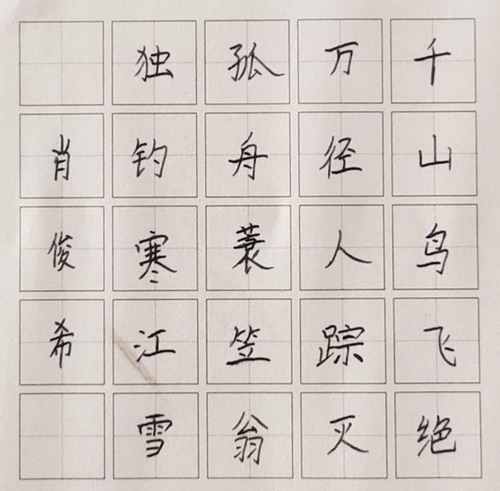 千山鸟飞绝
万径人踪灭
孤舟蓑笠翁
独钓寒江雪
肖俊希